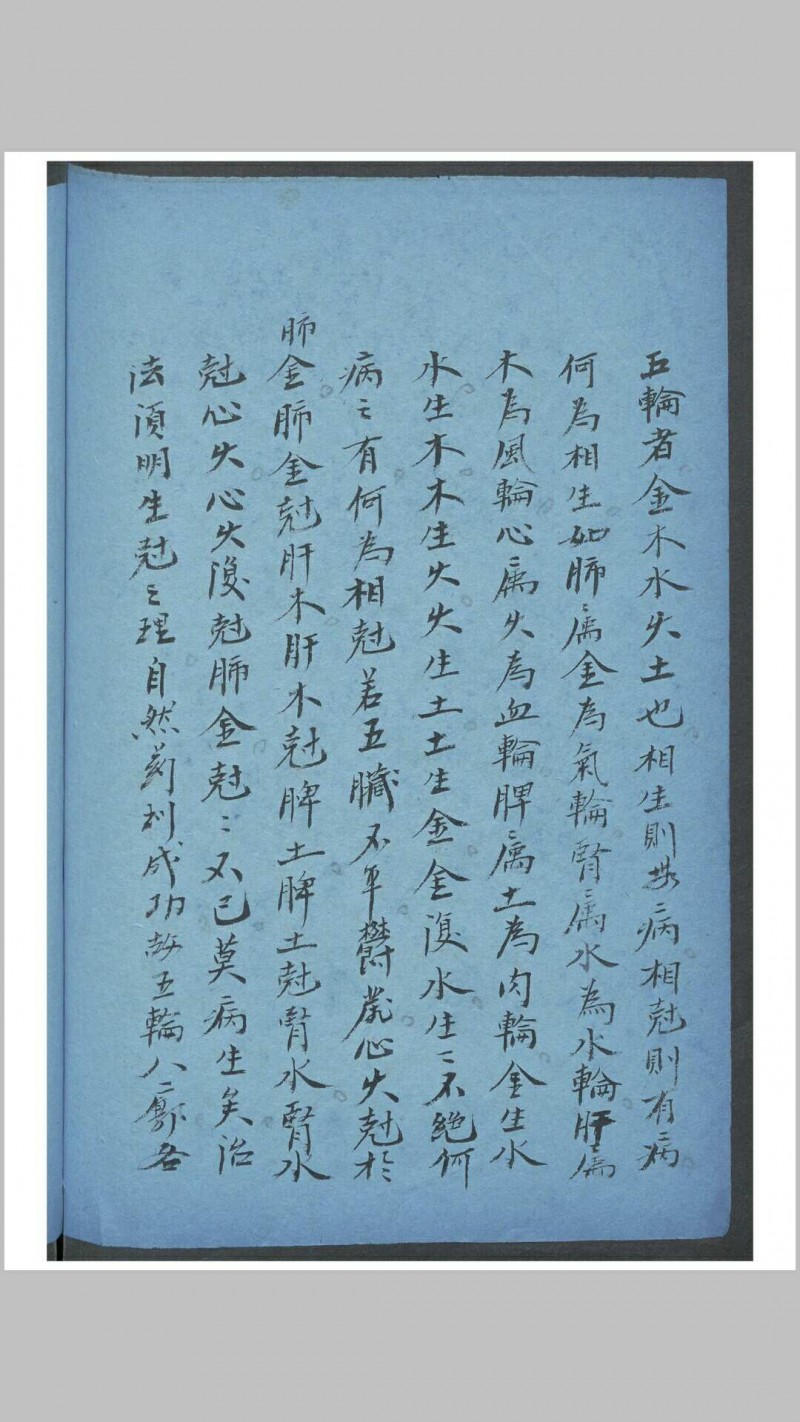 五輪者金木水火土也相生則無病相尅則有病
何為相生如肺〻属金為氣輪腎〻属水為水輪肝〻属
木為風輪心〻属火為血輪脾〻属土為肉輪金生水
水生木木生火火生土土生金金復水生〻不絕何
病之有何為相尅若五臟不平欝蒸心火尅於
肺金肺金尅肝木肝木尅脾土脾土尅腎水腎水
尅心火心火復尅肺金尅〻不已莫病生矣治
法須明生尅之理自然葯到成功故五輪八廓各